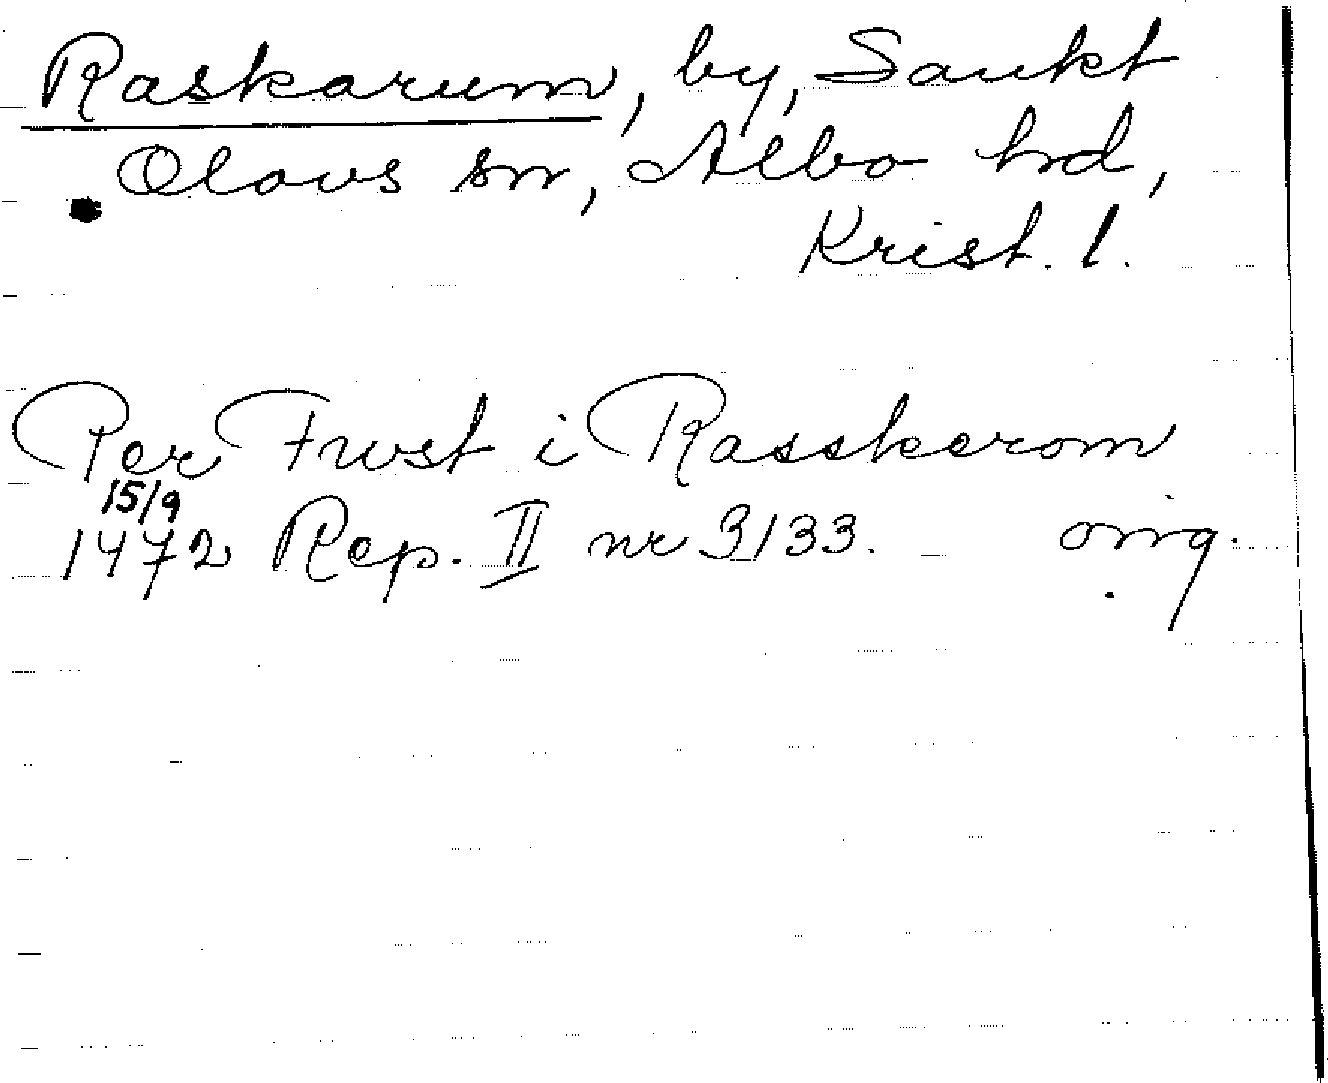 Raskarum, by, Sankt
Olovs sn, Albo hd,
Krist. l.
Per Trwst i Rasskerom
15/9
1472 Rep. II nr 3133. – orig.